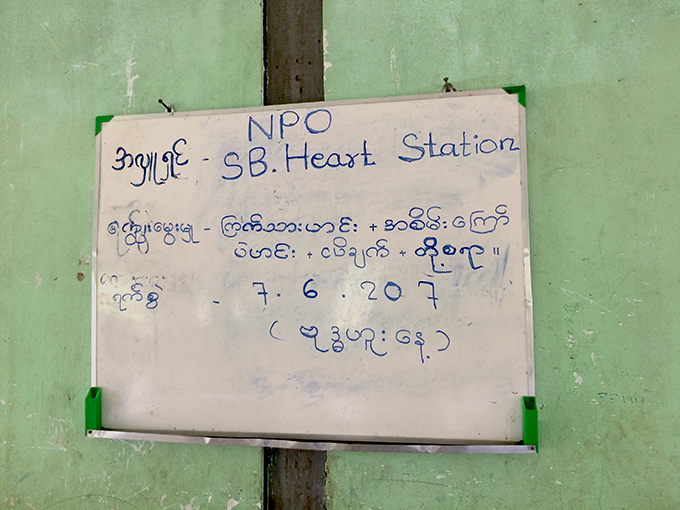 NPO
အလှူရှင် - SB. Heart Station
ကျွေးမွေးမှု - ကြက်သားဟင်း + အစိမ်းကြော်
ပဲဟင်း + ငပိချက် + တို့စရာ ။
ရက်စွဲ - 7. 6. 207
( ဗုဒ္ဓဟူးနေ့ )